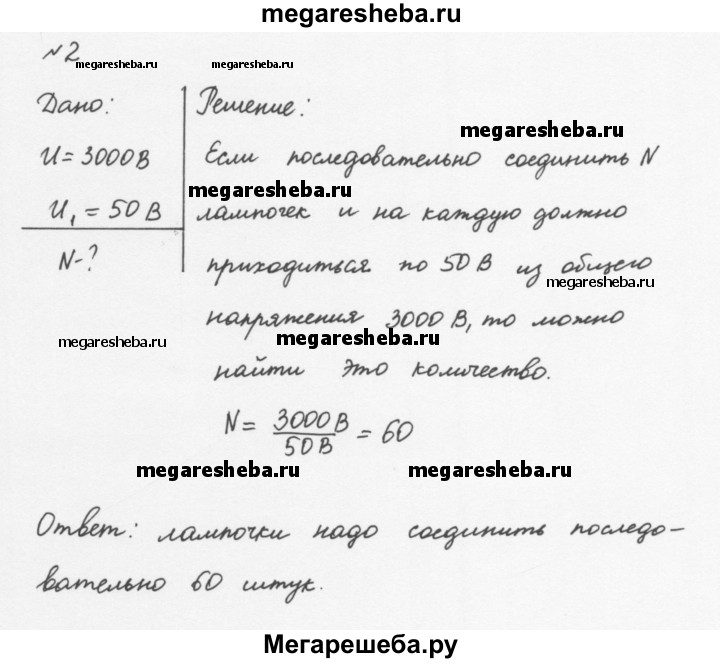 megaresheba.ru
№2
megaresheba.ru megaresheba.ru
Дано: Решение:
megaresheba.ru
U = 3000 В Если последовательно соединить N
megaresheba.ru
U₁ = 50 В лампочек и на каждую должно
N-? приходиться по 50 В из общего
megaresheba.ru
напряжения 3000 В, то можно
megaresheba.ru megaresheba.ru
найти это количество.
N = 3000 В / 50 В = 60
megaresheba.ru megaresheba.ru
Ответ: лампочки надо соединить последо-
вательно 60 штук.
Мегарешеба.ру